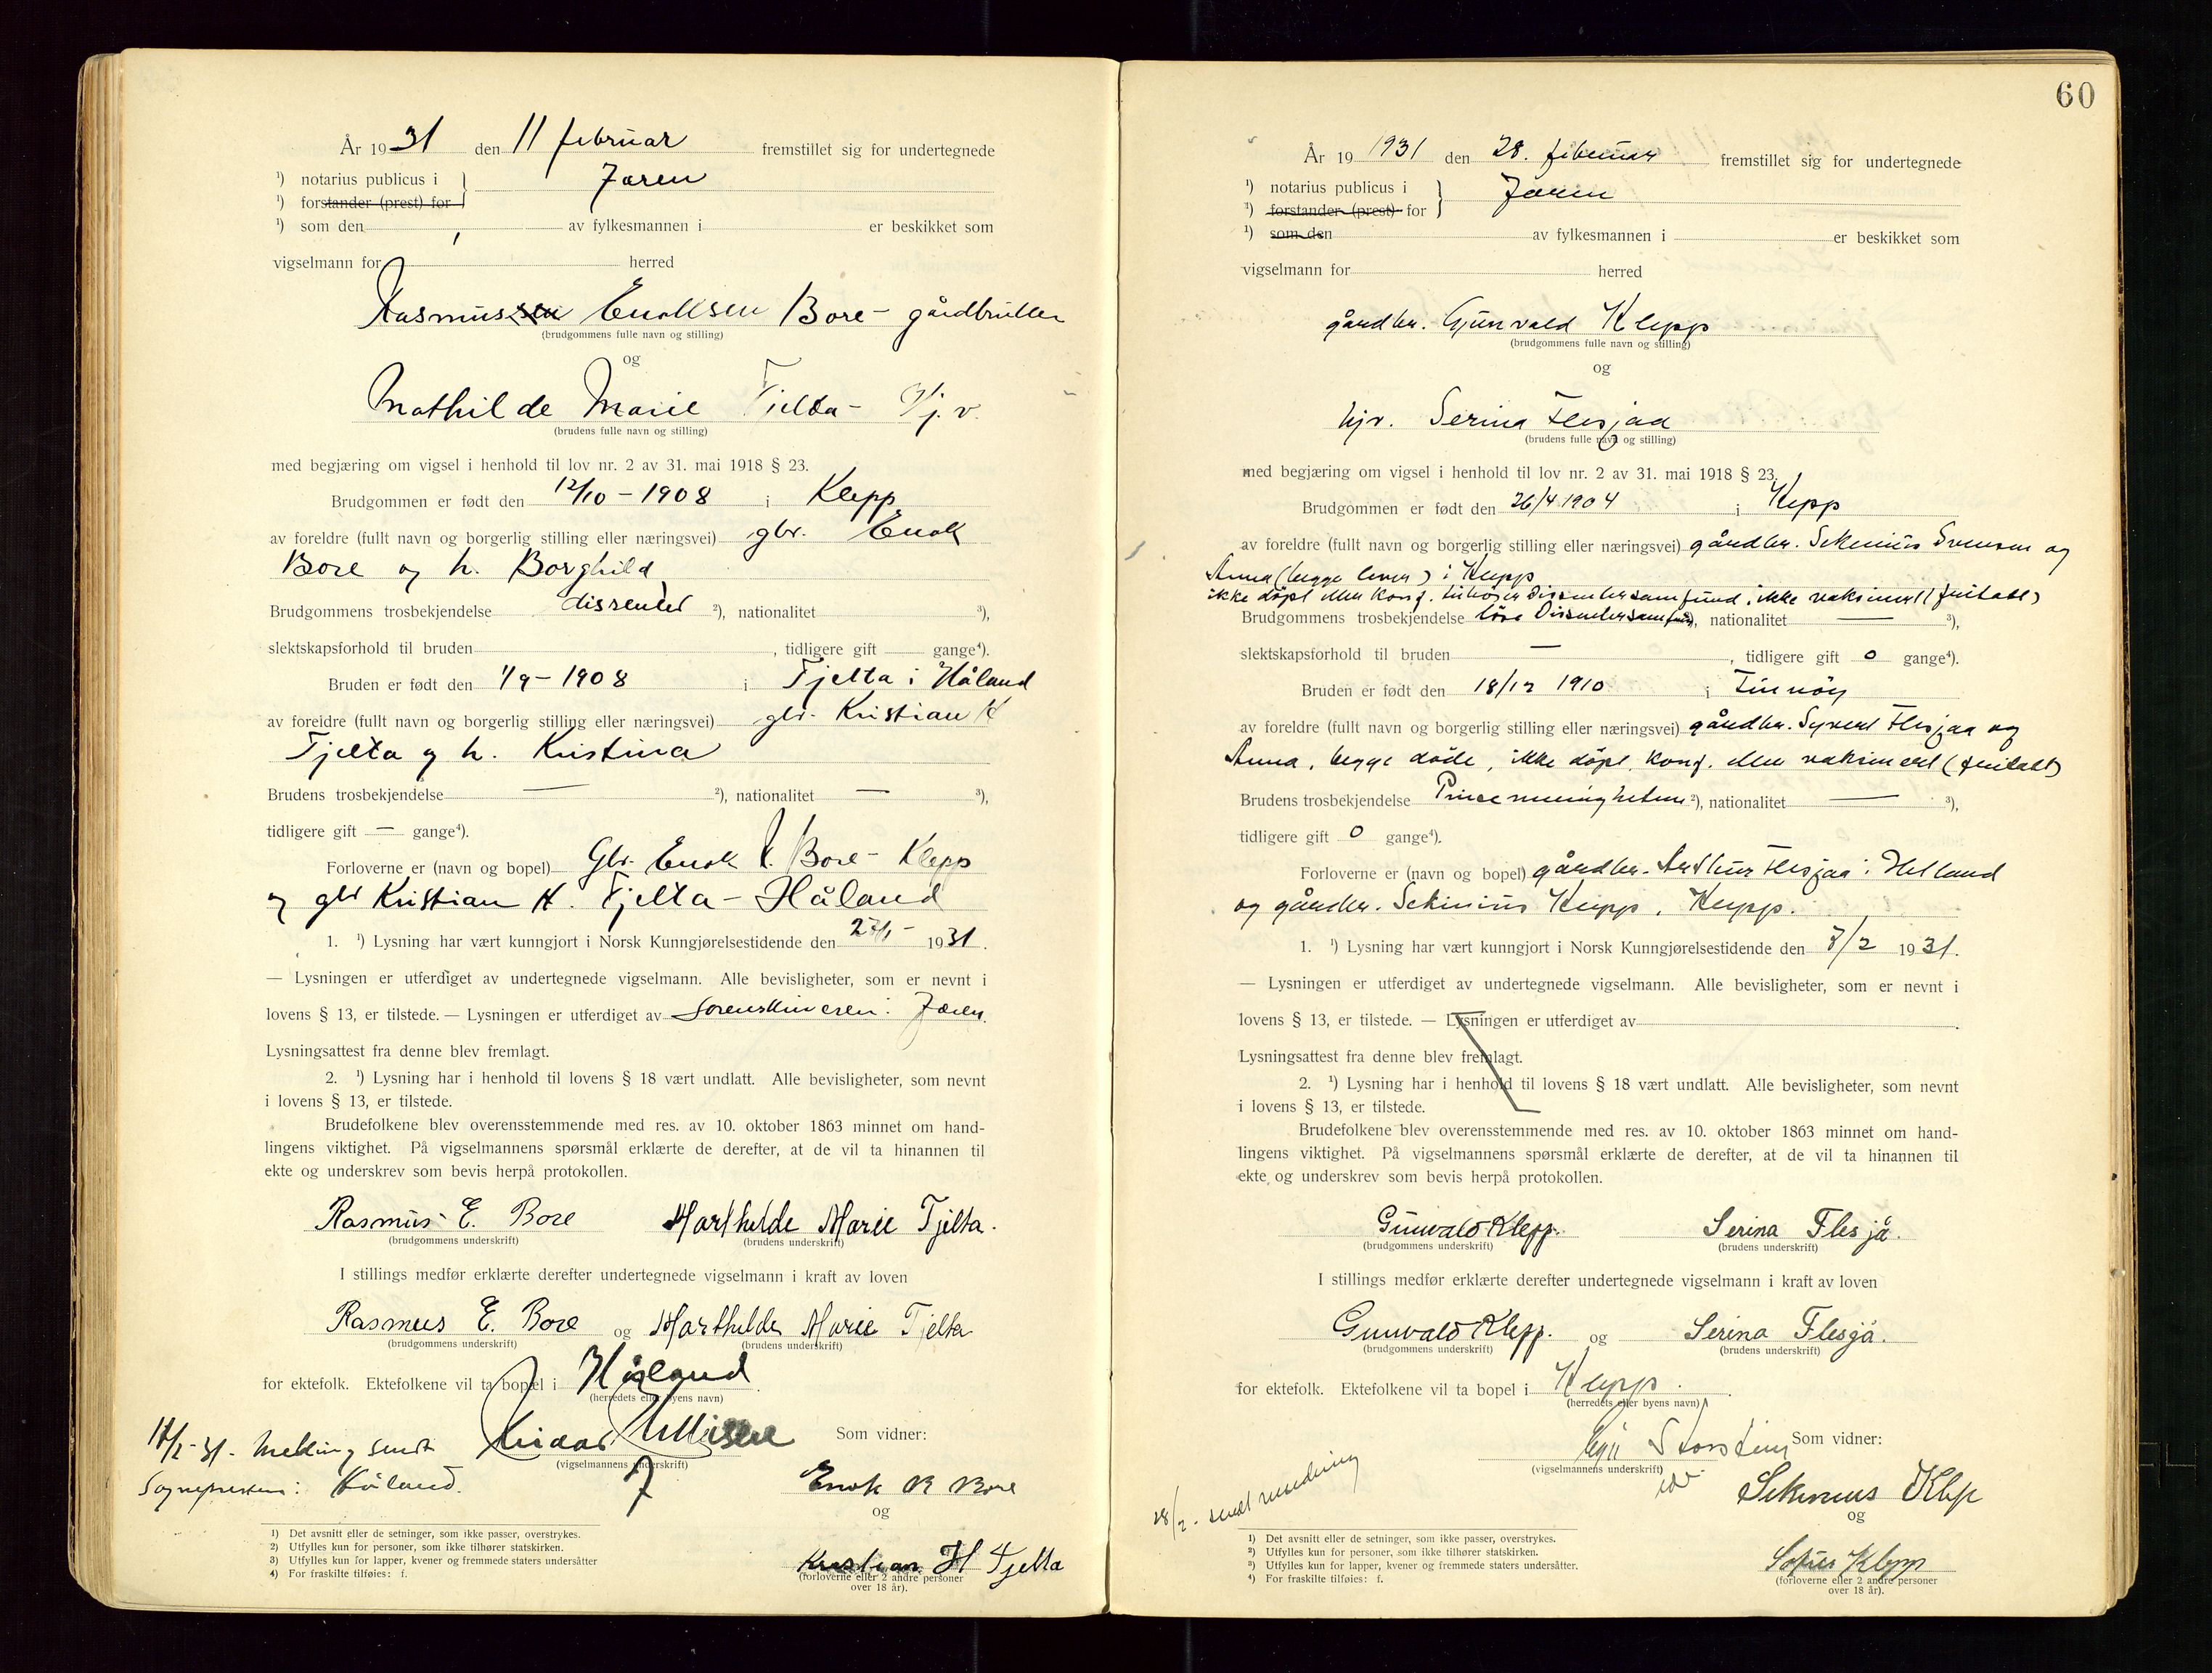 År 1931 den 11 februar fremstillet sig for undertegnede
¹) notarius publicus i } Jæren
¹) forstander (prest) for
¹) som den , av fylkesmannen i er beskikket som
vigselmann for herred
Rasmussen Enoksen Bore - gårdbruker
(brudgommens fulle navn og stilling)
og
Mathilde Marie Tjelta - Hj. v.
(brudens fulle navn og stilling)
med begjæring om vigsel i henhold til lov nr. 2 av 31. mai 1918 § 23.
Brudgommen er født den 12/10 - 1908 i Klepp
av foreldre (fullt navn og borgerlig stilling eller næringsvei) gbr. Enok
Bore og h. Borghild
Brudgommens trosbekjendelse dissenter ²), nationalitet ³),
slektskapsforhold til bruden , tidligere gift gange⁴).
Bruden er født den 1/9 - 1908 i Tjelta i Håland
av foreldre (fullt navn og borgerlig stilling eller næringsvei) gbr. Kristian H
Tjelta og h. Kristina
Brudens trosbekjendelse — ²), nationalitet — ³),
tidligere gift — gange⁴).
Forloverne er (navn og bopel) Gbr. Enok R. Bore - Klepp
og gbr Kristian H. Tjelta - Håland
1. ¹) Lysning har vært kunngjort i Norsk Kunngjørelsestidende den 1931.
— Lysningen er utferdiget av undertegnede vigselmann. Alle bevisligheter, som er nevnt i
lovens § 13, er tilstede. — Lysningen er utferdiget av Sorenskriveren i Jæren.
Lysningsattest fra denne blev fremlagt.
2. ¹) Lysning har i henhold til lovens § 18 vært undlatt. Alle bevisligheter, som nevnt
i lovens § 13, er tilstede.
Brudefolkene blev overensstemmende med res. av 10. oktober 1863 minnet om hand-
lingens viktighet. På vigselmannens spørsmål erklærte de derefter, at de vil ta hinannen til
ekte og underskrev som bevis herpå protokollen.
Rasmus E. Bore Marthilde Marie Tjelta.
(brudgommens underskrift) (brudens underskrift)
I stillings medfør erklærte derefter undertegnede vigselmann i kraft av loven
Rasmus E. Bore og Marthilde Marie Tjelta
(brudgommens underskrift) (brudens underskrift)
for ektefolk. Ektefolkene vil ta bopel i Håland
(herredets eller byens navn)
Som vidner:
(vigselmannens underskrift)
-31. Melding sendt
Sognepresten i Håland.
Enok R Bore
og
Kristian H Tjelta
(forloverne eller 2 andre personer
over 18 år).
1) Det avsnitt eller de setninger, som ikke passer, overstrykes.
2) Utfylles kun for personer, som ikke tilhører statskirken.
3) Utfylles kun for lapper, kvener og fremmede staters undersåtter
4) For fraskilte tilføies: f.
60
År 19 1931 den 28. februar fremstillet sig for undertegnede
¹) notarius publicus i } Jæren
¹) forstander (prest) for
¹) som den av fylkesmannen i er beskikket som
vigselmann for herred
gårdbr. Gunvald Klepp
(brudgommens fulle navn og stilling)
og
hjv. Serina Flesjaa
(brudens fulle navn og stilling)
med begjæring om vigsel i henhold til lov nr. 2 av 31. mai 1918 § 23.
Brudgommen er født den 26/4 1904 i Klepp
av foreldre (fullt navn og borgerlig stilling eller næringsvei) gårdbr. Sekinius Svensen og
Anna (begge lever) i Klepp
ikke döpt eller konf. tilhörer Dissentersamfund, ikke vaksinert (fritatt)
Brudgommens trosbekjendelse Dissentersamfund ²), nationalitet — ³),
slektskapsforhold til bruden — , tidligere gift 0 gange⁴).
Bruden er født den 18/12 1910 i Finnöy
av foreldre (fullt navn og borgerlig stilling eller næringsvei) gårdbr. Syvert Flesjaa og
Anna, begge döde, ikke döpt, konf. eller vaksinert (fritatt)
Brudens trosbekjendelse Pinsemenigheten ²), nationalitet — ³),
tidligere gift 0 gange⁴).
Forloverne er (navn og bopel) gårdbr. Arthur Flesjaa i Helland
og gårdbr. Sekinius Klepp, Klepp.
1. ¹) Lysning har vært kunngjort i Norsk Kunngjørelsestidende den 7/2 1931.
— Lysningen er utferdiget av undertegnede vigselmann. Alle bevisligheter, som er nevnt i
lovens § 13, er tilstede. — Lysningen er utferdiget av .
Lysningsattest fra denne blev fremlagt.
2. ¹) Lysning har i henhold til lovens § 18 vært undlatt. Alle bevisligheter, som nevnt
i lovens § 13, er tilstede.
Brudefolkene blev overensstemmende med res. av 10. oktober 1863 minnet om hand-
lingens viktighet. På vigselmannens spørsmål erklærte de derefter, at de vil ta hinannen til
ekte og underskrev som bevis herpå protokollen.
Gunvald Klepp. Serina Flesjå.
(brudgommens underskrift) (brudens underskrift)
I stillings medfør erklærte derefter undertegnede vigselmann i kraft av loven
Gunvald Klepp. og Serina Flesjå.
(brudgommens underskrift) (brudens underskrift)
for ektefolk. Ektefolkene vil ta bopel i Klepp.
(herredets eller byens navn)
Storstein Som vidner:
(vigselmannens underskrift)
28/2. sendt melding
Sekinius Klep
og
Sofus Klepp
(forloverne eller 2 andre personer
over 18 år).
1) Det avsnitt eller de setninger, som ikke passer, overstrykes.
2) Utfylles kun for personer, som ikke tilhører statskirken.
3) Utfylles kun for lapper, kvener og fremmede staters undersåtter.
4) For fraskilte tilføies: f.